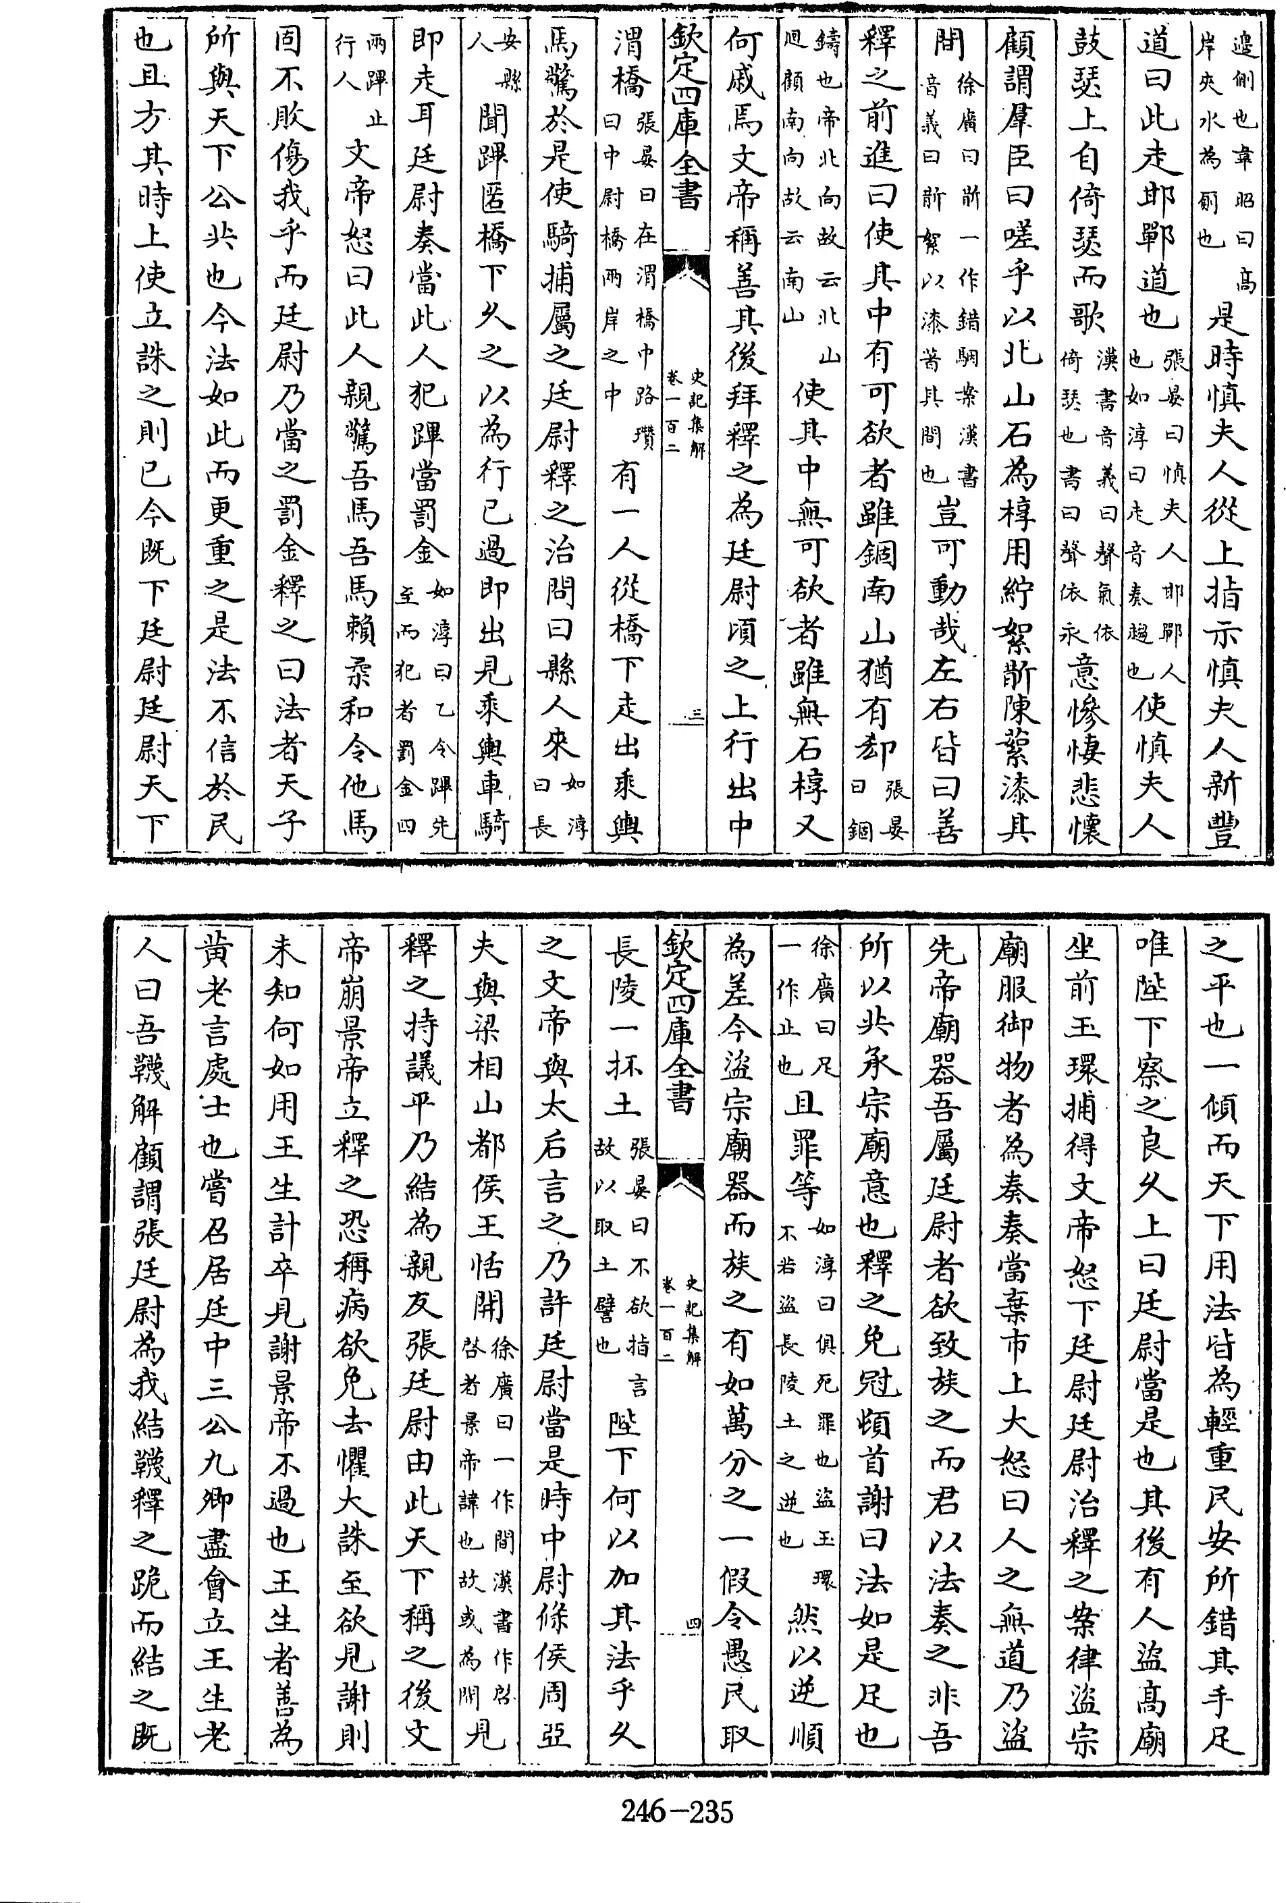 邊側也韋昭曰高岸夾水為厠也是時慎夫人從上指示慎夫人新豐
道曰此走邯鄲道也張晏曰慎夫人邯鄲人也如淳曰走音奏趨也使慎夫人
鼓瑟上自倚瑟而歌漢書音義曰聲氣依倚瑟也書曰聲依永意慘悽悲懷
顧謂羣臣曰嗟乎以北山石為椁用紵絮斮陳蘂漆其
間徐廣曰斮一作錯駰案漢書音義曰斮絮以漆著其間也豈可動哉左右皆曰善
釋之前進曰使其中有可欲者雖錮南山猶有郄張晏曰錮
鑄也帝北向故云北山廻顧南向故云南山使其中無可欲者雖無石椁又
何戚焉文帝稱善其後拜釋之為廷尉頃之上行出中
欽定四庫全書 史記集解 卷一百二 三
渭橋張晏曰在渭橋中路瓚曰中尉橋兩岸之中有一人從橋下走出乘輿
馬驚於是使騎捕屬之廷尉釋之治問曰縣人來如淳曰長
安縣人聞蹕匿橋下久之以為行已過即出見乘輿車騎
即走耳廷尉奏當此人犯蹕當罰金如淳曰乙令蹕先至而犯者罰金四
兩蹕止行人文帝怒曰此人親驚吾馬吾馬賴柔和令他馬
固不敗傷我乎而廷尉乃當之罰金釋之曰法者天子
所與天下公共也今法如此而更重之是法不信於民
也且方其時上使立誅之則已今既下廷尉廷尉天下
之平也一傾而天下用法皆為輕重民安所錯其手足
唯陛下察之良久上曰廷尉當是也其後有人盜高廟
坐前玉環捕得文帝怒下廷尉廷尉治釋之案律盜宗
廟服御物者為奏奏當棄市上大怒曰人之無道乃盜
先帝廟器吾屬廷尉者欲致族之而君以法奏之非吾
所以共承宗廟意也釋之免冠頓首謝曰法如是足也
徐廣曰足一作止也且罪等如淳曰俱死罪也盜玉環不若盜長陵土之逆也然以逆順
為差今盜宗廟器而族之有如萬分之一假令愚民取
欽定四庫全書 史記集解 卷一百二 四
長陵一抔土張晏曰不欲指言故以取土譬也陛下何以加其法乎久
之文帝與太后言之乃許廷尉當是時中尉條侯周亞
夫與梁相山都侯王恬開徐廣曰一作間漢書作啓啓者景帝諱也故或為開見
釋之持議平乃結為親友張廷尉由此天下稱之後文
帝崩景帝立釋之恐稱病欲免去懼大誅至欲見謝則
未知何如用王生計卒見謝景帝不過也王生者善為
黃老言處士也嘗召居廷中三公九卿盡會立王生老
人曰吾韤解顧謂張廷尉為我結韤釋之跪而結之既
246-235